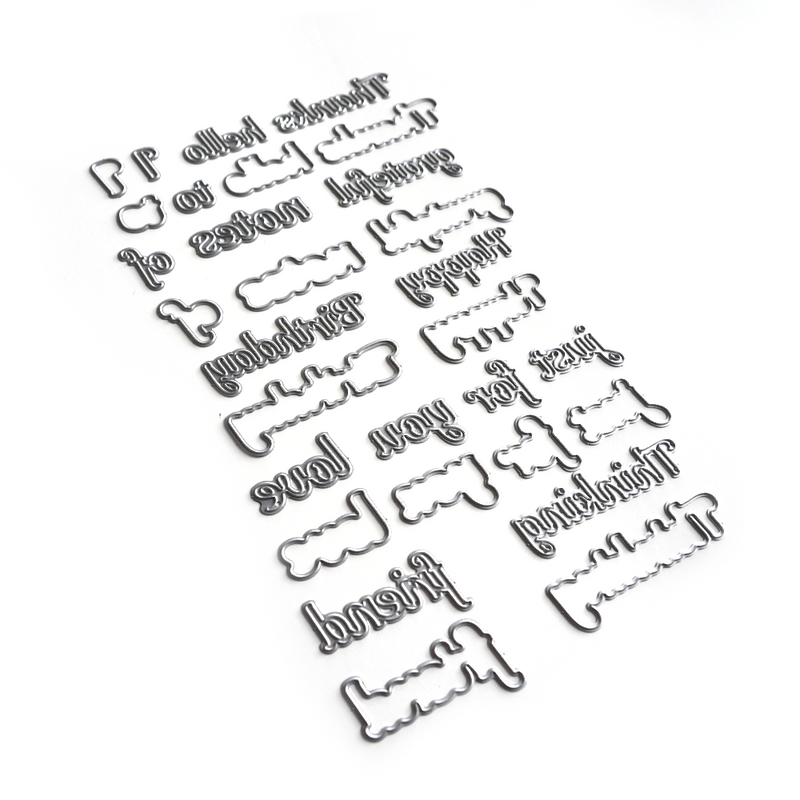 Thanks
hello
grateful
to
notes
of
Happy
Birthday
just
for
you
love
Thinking
friend